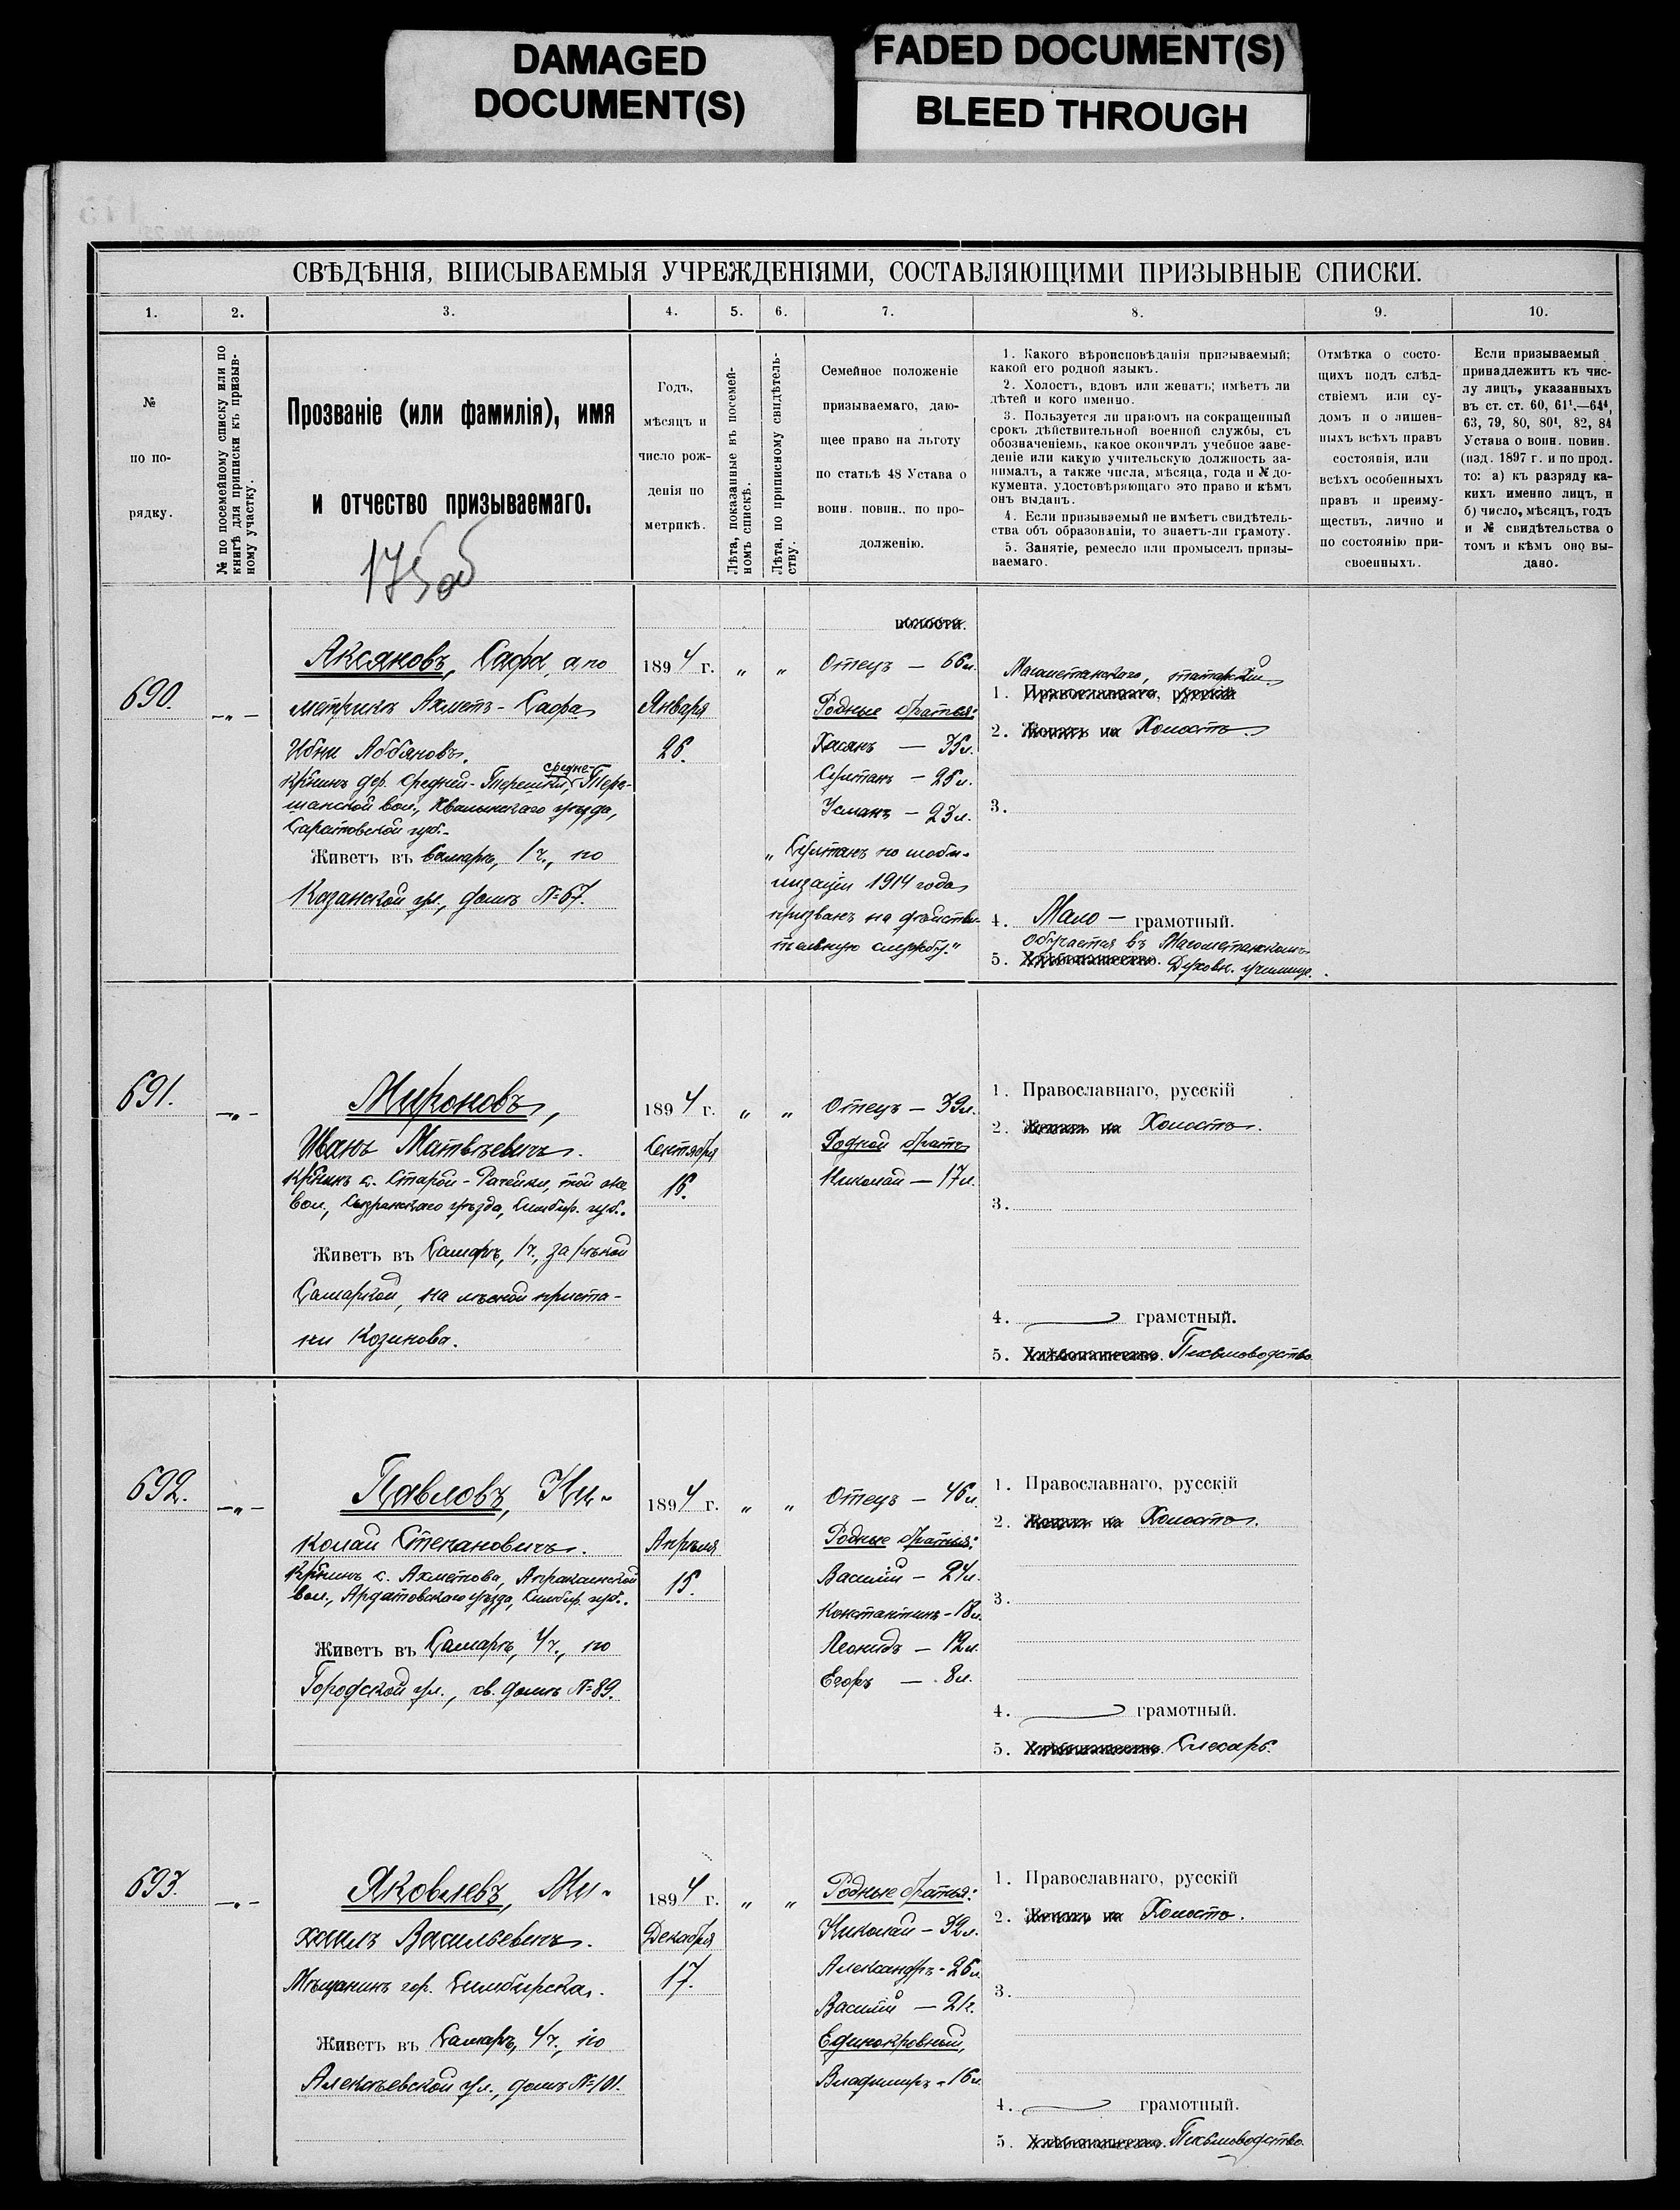 DAMAGED
DOCUMENT(S)
FADED DOCUMENT(S)
BLEED THROUGH
СВѢДѢНІЯ, ВПИСЫВАЕМЫЯ УЧРЕЖДЕНІЯМИ, СОСТАВЛЯЮЩИМИ ПРИЗЫВНЫЕ СПИСКИ.
1. 2. 3. 4. 5. 6. 7. 8. 9. 10.
№
по по-
рядку.
№ по посемейному списку или по
книгѣ для приписки къ призыв-
ному участку.
Прозваніе (или фамилія), имя
и отчество призываемаго.
175 об
Годъ,
мѣсяцъ и
число рож-
денія по
метрикѣ.
Лѣта, показанные въ посемей-
номъ спискѣ.
Лѣта, по приписному свидѣтель-
ству.
Семейное положеніе
призываемаго, даю-
щее право на льготу
по статьѣ 48 Устава о
воин. повин., по про-
долженію.
1. Какого вѣроисповѣданія призываемый;
какой его родной языкъ.
2. Холостъ, вдовъ или женатъ; имѣетъ ли
дѣтей и кого именно.
3. Пользуется ли правомъ на сокращенный
срокъ дѣйствительной военной службы, съ
обозначеніемъ, какое окончилъ учебное заве-
деніе или какую учительскую должность за-
нималъ, а также числа, мѣсяца, года и № до-
кумента, удостовѣряющаго это право и кѣмъ
онъ выданъ.
4. Если призываемый не имѣетъ свидѣтель-
ства объ образованіи, то знаетъ-ли грамоту.
5. Занятіе, ремесло или промыселъ призы-
ваемаго.
Отмѣтка о состо-
щихъ подъ слѣд-
ствіемъ или су-
домъ и о лишен-
ныхъ всѣхъ правъ
состоянія, или
всѣхъ особенныхъ
правъ и преиму-
ществъ, лично и
по состоянію при-
своенныхъ.
Если призываемый
принадлежитъ къ чис-
лу лицъ, указанныхъ
въ ст. ст. 60, 61¹.—64⁴,
63, 79, 80, 80¹, 82, 84
Устава о воин. повин.
(изд. 1897 г. и по прод.
то: а) къ разряду ка-
кихъ именно лицъ, и
б) число, мѣсяцъ, годъ
и № свидѣтельства о
томъ и кѣмъ оно вы-
дано.
690.
—„—
Аксяновъ, Сафа, а по
метрикѣ Ахметъ-Сафа
Ибни Аббяновъ.
средне-
Кр-нинъ дер. Средней-Терешки, Тере-
шанской вол., Хвалынскаго уѣзда,
Саратовской губ.
Живетъ въ Самарѣ, 1 ч., по
Казанской ул., домъ № 67.
1894 г.
Января
26.
„ „
волости.
Отецъ — 66 л.
Родные братья:
Хасянъ — 35 л.
Султанъ — 25 л.
Усманъ — 23 л.
„Султанъ по моби-
лизаціи 1914 года
призванъ на дѣйстви-
тельную службу."
Магометанскаго, татарскій
1. Православнаго, русскій
2. Женатъ на Холостъ.
3.
4. Мало — грамотный.
обучается въ Магометанскомъ
5. Хлѣбопашество. Духовн. училищѣ.
691.
—„—
Мироновъ,
Иванъ Матвѣевичъ.
Кр-нинъ с. Старой-Рачейки, той же
вол., Сызранскаго уѣзда, Симбир. губ.
Живетъ въ Самарѣ, 1 ч., за рѣкой
Самаркой, на лѣсной приста-
ни Козинова.
1894 г.
Сентября
15.
„ „
Отецъ — 39 л.
Родной братъ
Николай — 17 л.
1. Православнаго, русскій
2. Женатъ на Холостъ.
3.
4. грамотный.
5. Хлѣбопашество. Письмоводство
692.
—„—
Павловъ, Ни-
колай Степановичъ.
Кр-нинъ с. Ахметова, Апраксинской
вол., Ардатовскаго уѣзда, Симбир. губ.
Живетъ въ Самарѣ, 4 ч., по
Городской ул., св. домъ № 89.
1894 г.
Апрѣля
15.
„ „
Отецъ — 46 л.
Родные братья:
Василій — 24 л.
Константинъ - 18 л.
Леонидъ — 12 л.
Егоръ — 8 л.
1. Православнаго, русскій
2. Женатъ на Холостъ.
3.
4. грамотный.
5. Хлѣбопашество. Слесарь.
693.
—„—
Яковлевъ, Ми-
хаилъ Васильевичъ.
Мѣщанинъ гор. Симбирска.
Живетъ въ Самарѣ, 4 ч., по
Алексѣевской ул., домъ № 101.
1894 г.
Декабря
17.
„ „
Родные братья:
Николай — 32 л.
Александръ - 26 л.
Василій — 21 г.
Единокровный,
Владимиръ - 16 л.
1. Православнаго, русскій
2. Женатъ на Холостъ.
3.
4. грамотный.
5. Хлѣбопашество. Письмоводство.